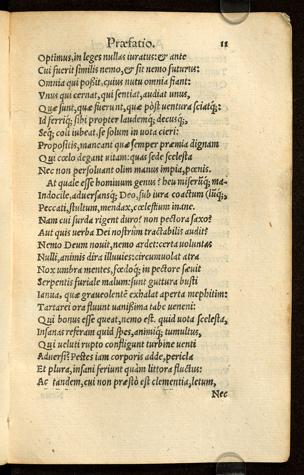 Præfatio. 11
Optimus, in leges nullas iuratus: & ante
Cui fuerit similis nemo, & sit nemo futurus:
Omnia qui poßit, cuius nutu omnia fiant:
Vnus qui cernat, qui sentiat, audiat unus,
Quæ sunt, quæ fuerunt, quæ pòst uentura sciatq́;:
Id ferriq́; sibi propter laudemq́; decusq́;,
Seq́; coli iubeat. se solum in uota cieri:
Propositis, maneant quæ semper præmia dignam
Qui cœlo degant uitam: quas sede scelesta
Nec non persoluant olim manus impia, pœnis.
At quale esse hominum genus? heu miserũq́; ma-
Indocile, aduersansq́; Deo, sub iura coactum (lũq́;,
Peccati, stultum, mendax, cœlestium inane.
Nam cui surda rigent duro? non pectora saxo?
Aut quis uerba Dei nostrûm tractabilis audit?
Nemo Deum nouit, nemo ardet: certa uoluntas
Nulli, animis dira illuuies: circumuolat atra
Nox umbra mentes, fœdoq́; in pectore sæuit
Serpentis furiale malum: sunt guttura busti
Ianua, quæ graueolentẽ exhalat aperta mephitim:
Tartarei ora fluunt uanißima tabe ueneni:
Qui bonus esse queat, nemo est. quid uota scelesta,
Insanas referam quid spes, animiq́; tumultus,
Qui ueluti rupto confligunt turbine uenti
Aduersi? Pestes iam corporis adde, pericla
Et plura, insani feriunt quàm littora fluctus:
Ac tandem, cui non præstò est clementia, letum,
Nec